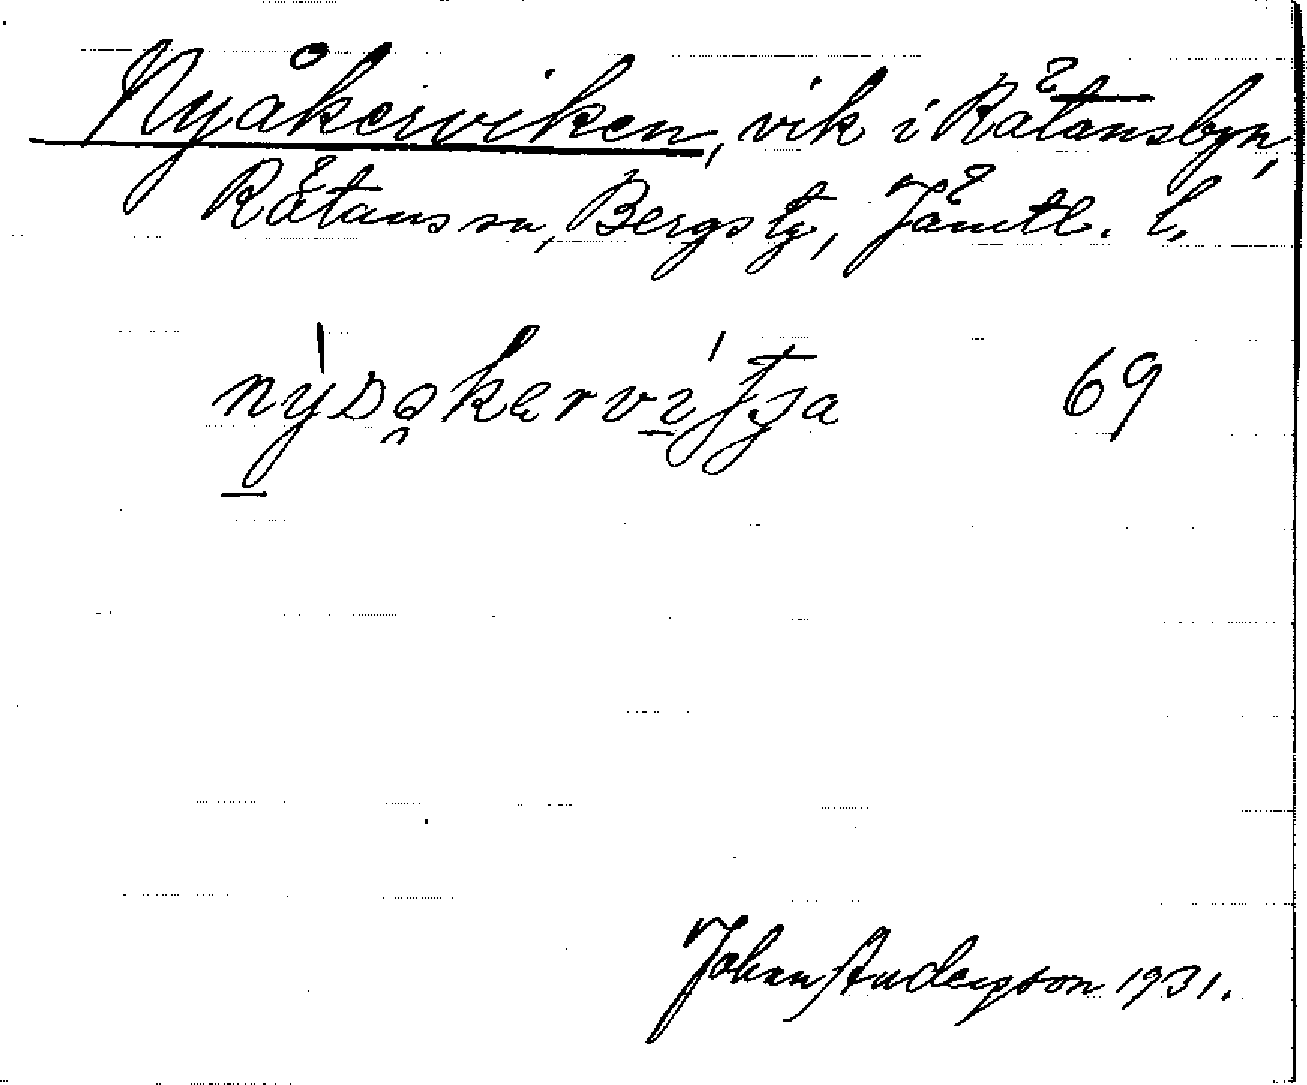 Nyåkerviken, vik i Rätansbyn,
Rätans sn, Bergs tg, Jämtl. l,
69
Johan Anderson 1931.